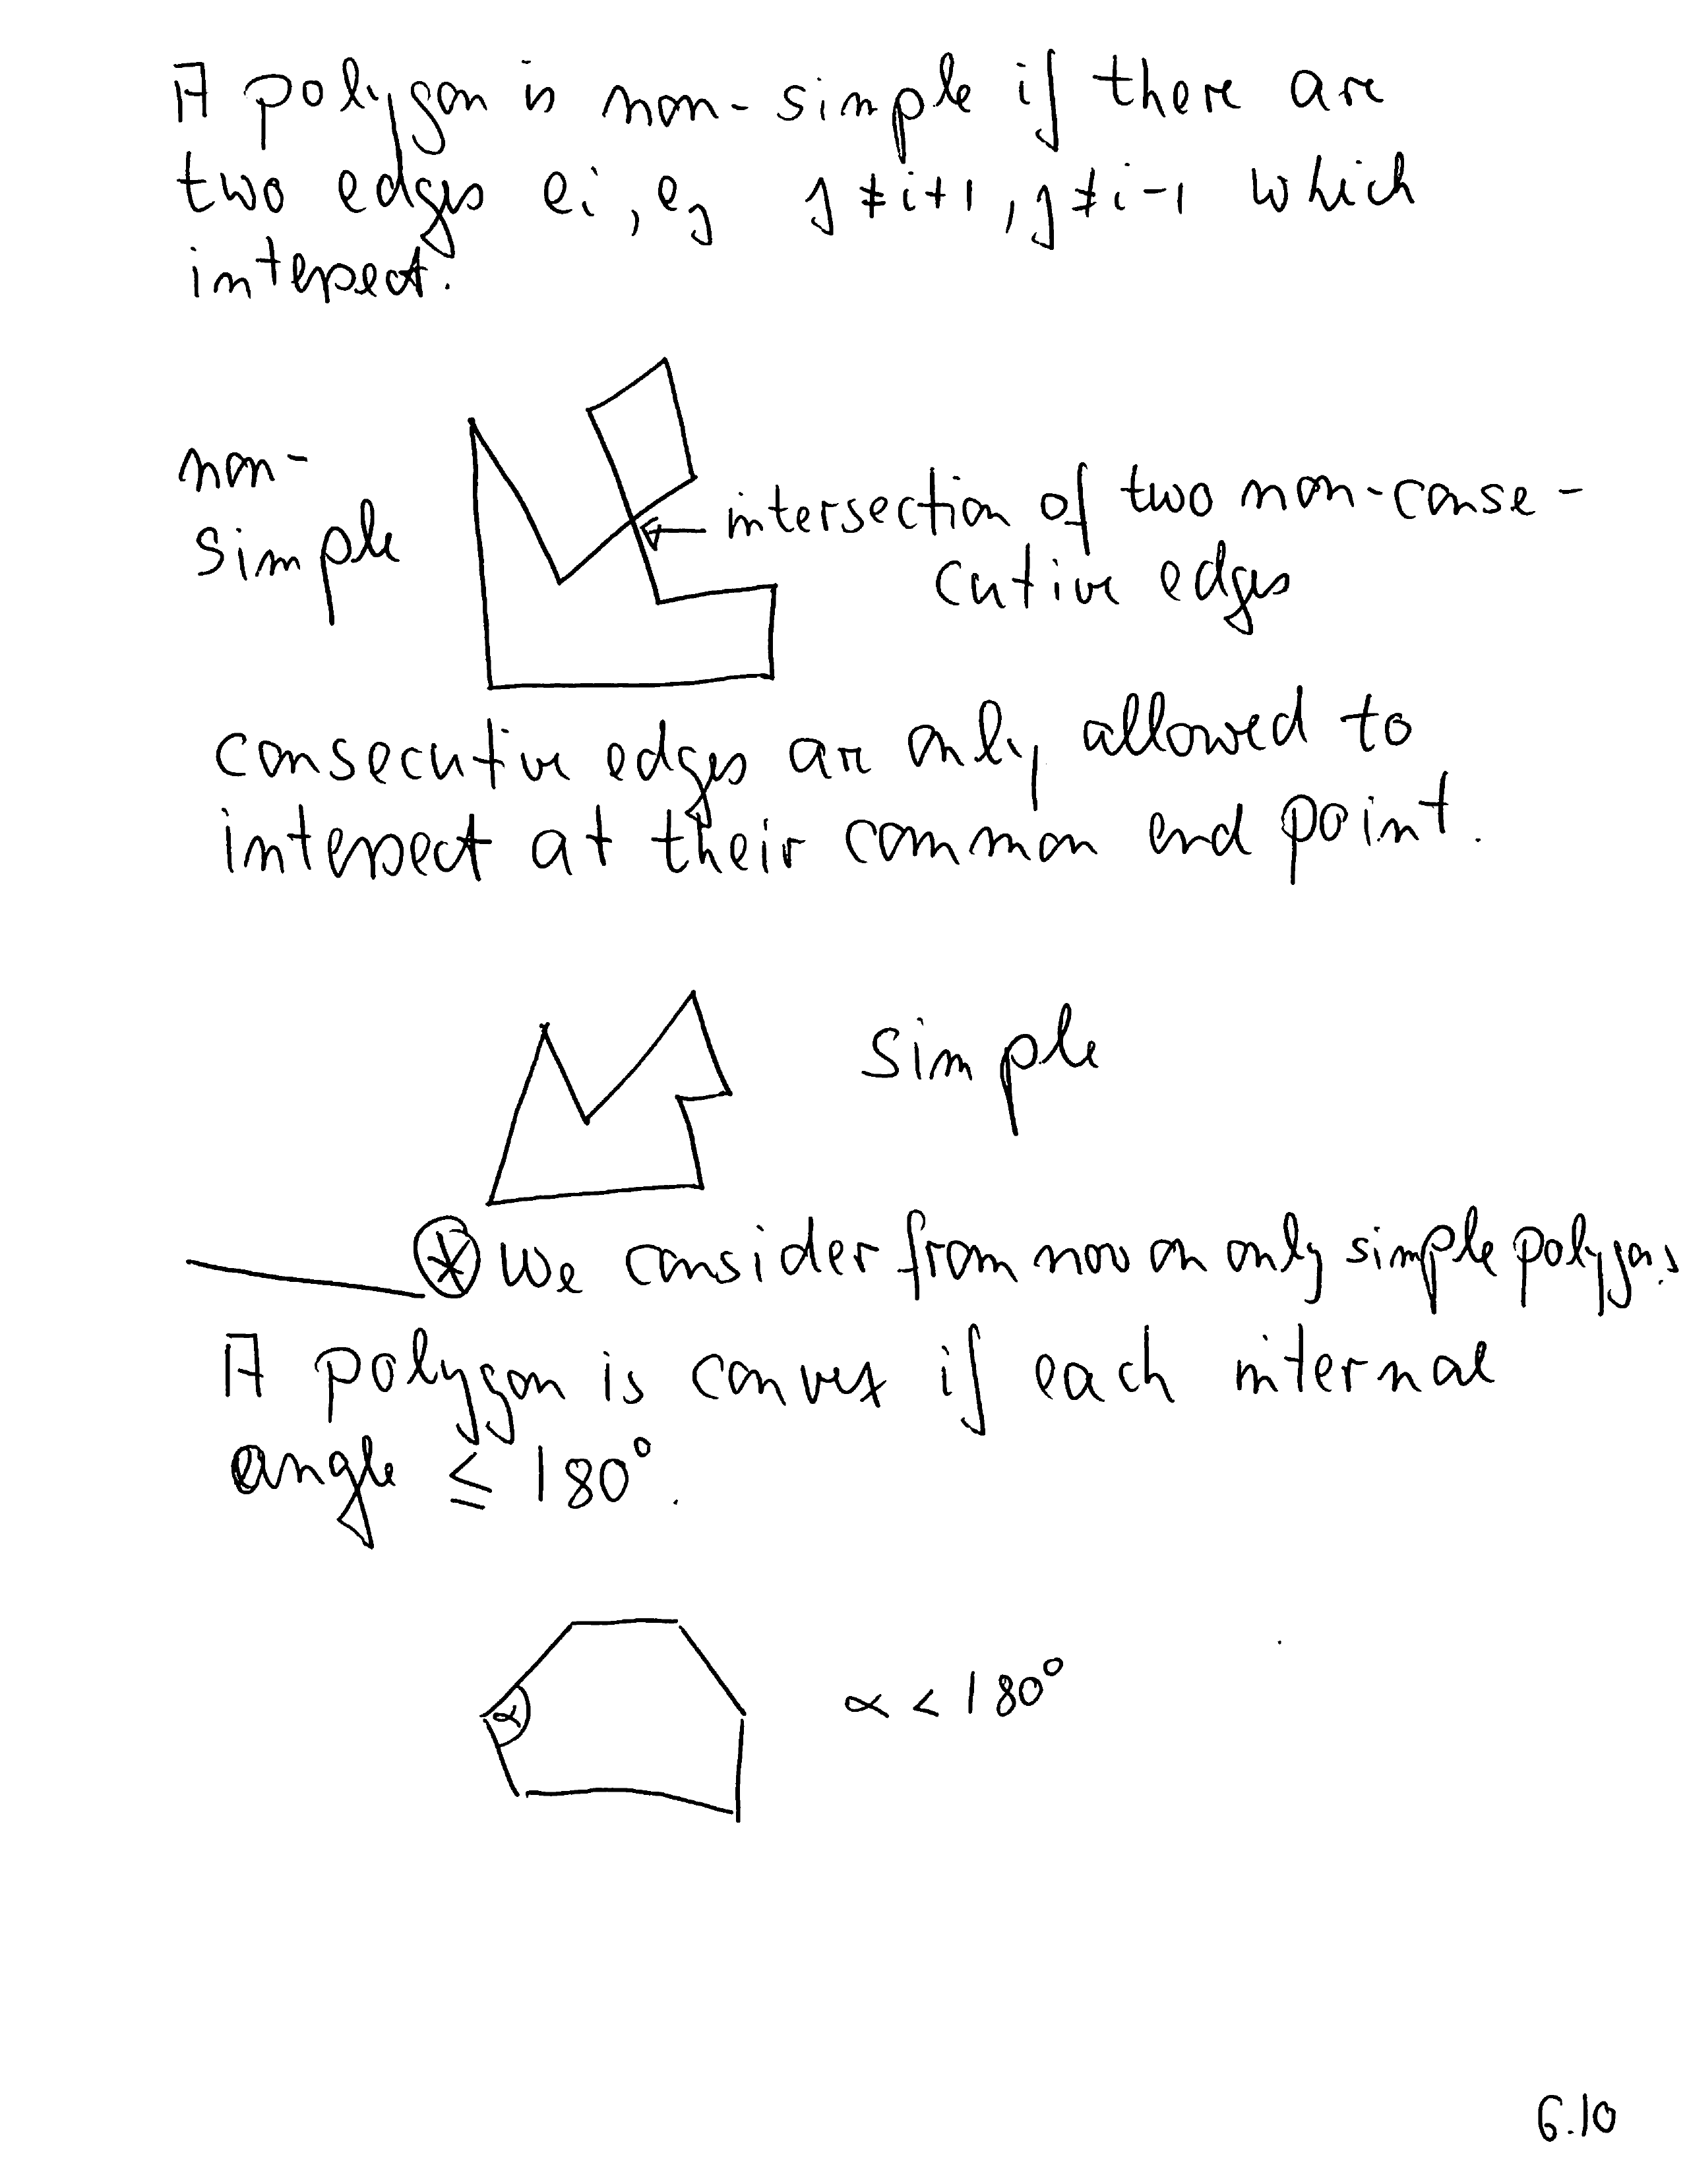 A polygon is non-simple if there are
two edges ei, ej j ≠ i+1, j ≠ i-1 which
intersect.
non-
simple
intersection of two non-conse-
cutive edges
consecutive edges are only allowed to
intersect at their common end point.
simple
* We consider from now on only simple polygons
A polygon is convex if each internal
angle ≤ 180°.
α
α < 180°
6.10